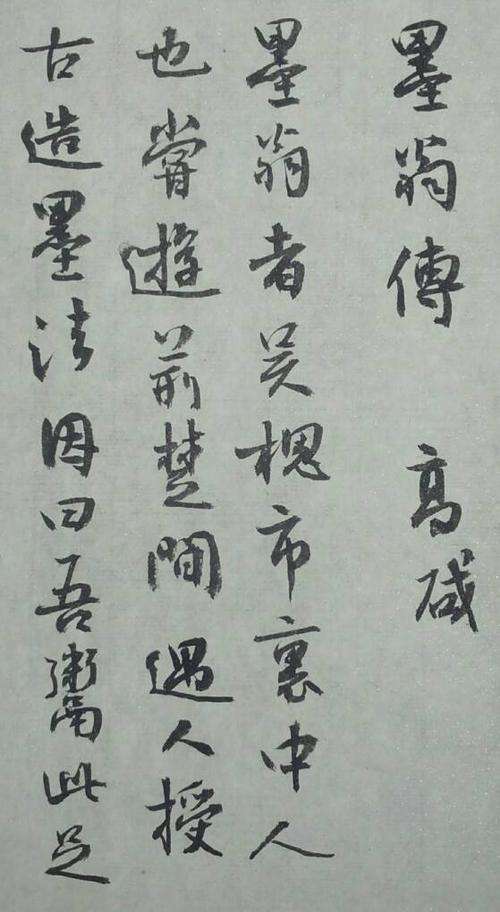 墨翁傳 高咸
墨翁者吴槐市裏中人
也嘗遊荊楚間遇人授
古造墨法因曰吾鬻此足